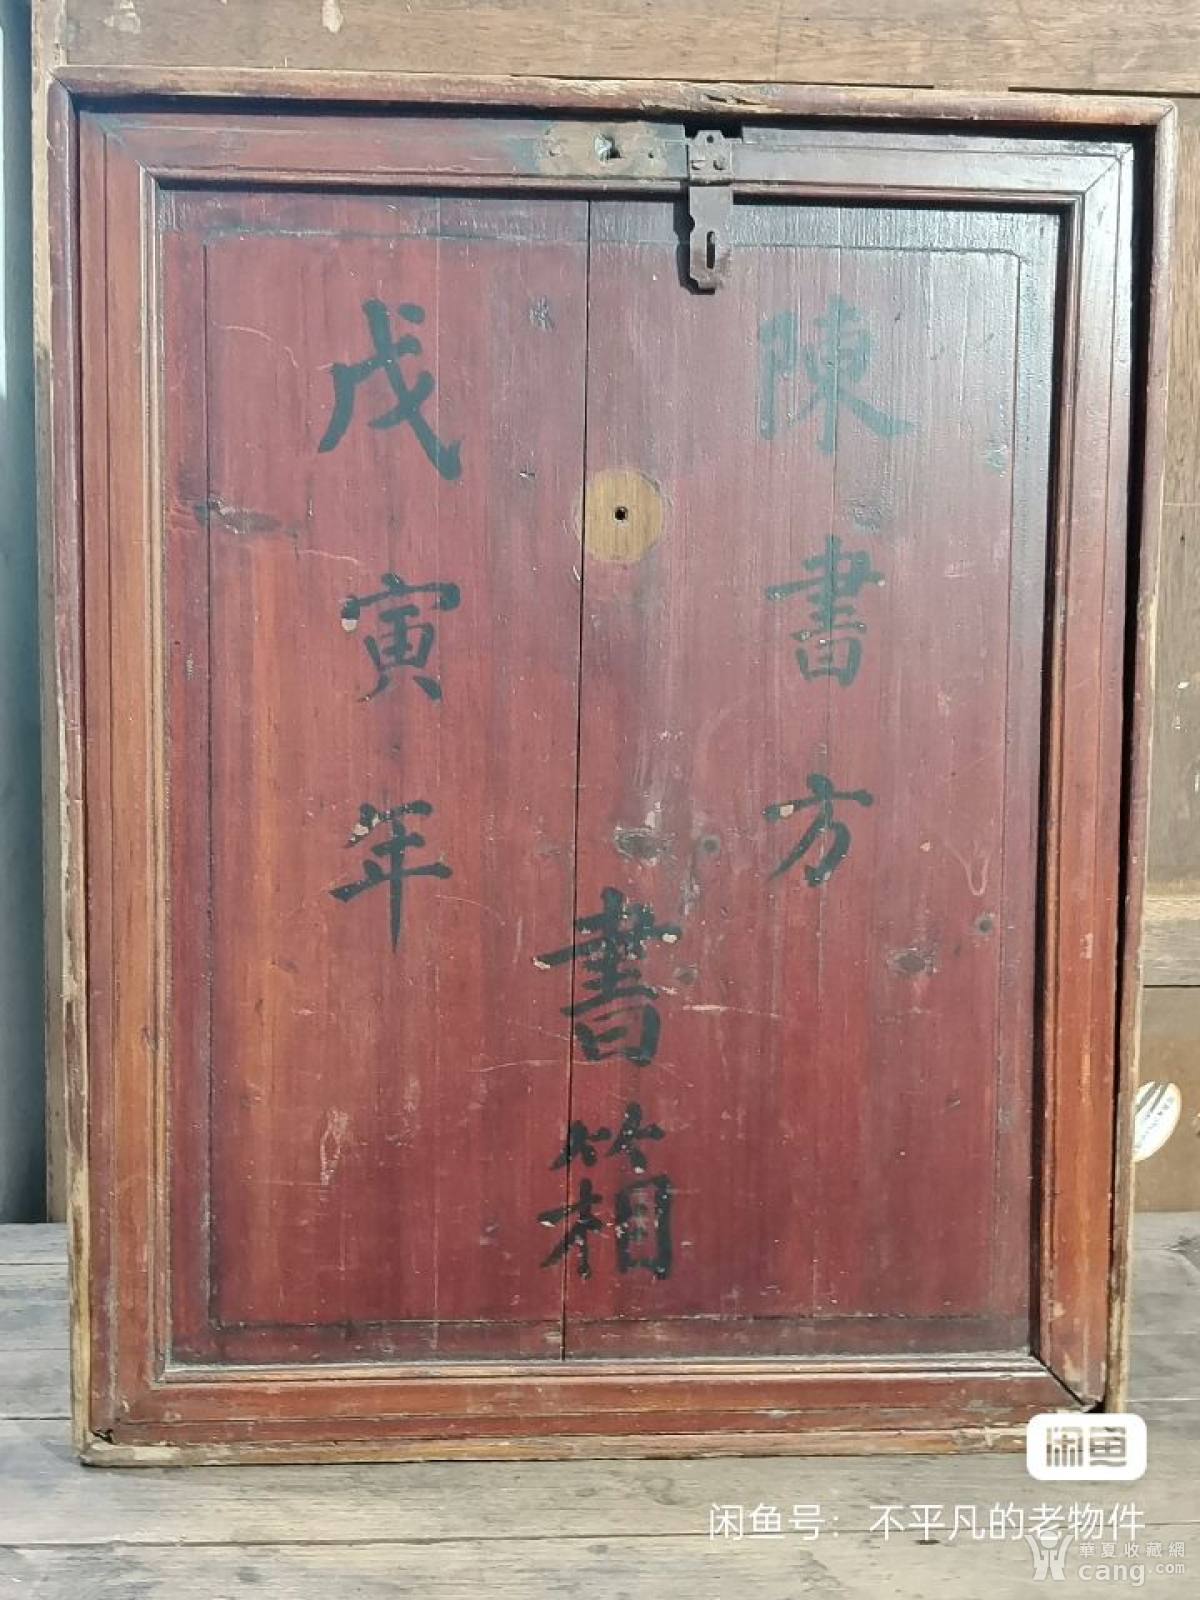 陳書方
書箱
戊寅年
闲鱼
闲鱼号：不平凡的老物件
華夏收藏網
cang.com